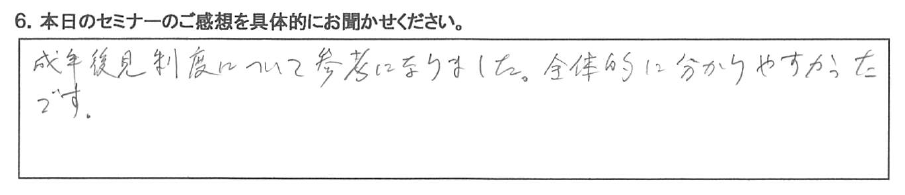 6. 本日のセミナーのご感想を具体的にお聞かせください。
成年後見制度について参考になりました。全体的に分かりやすかった
です。